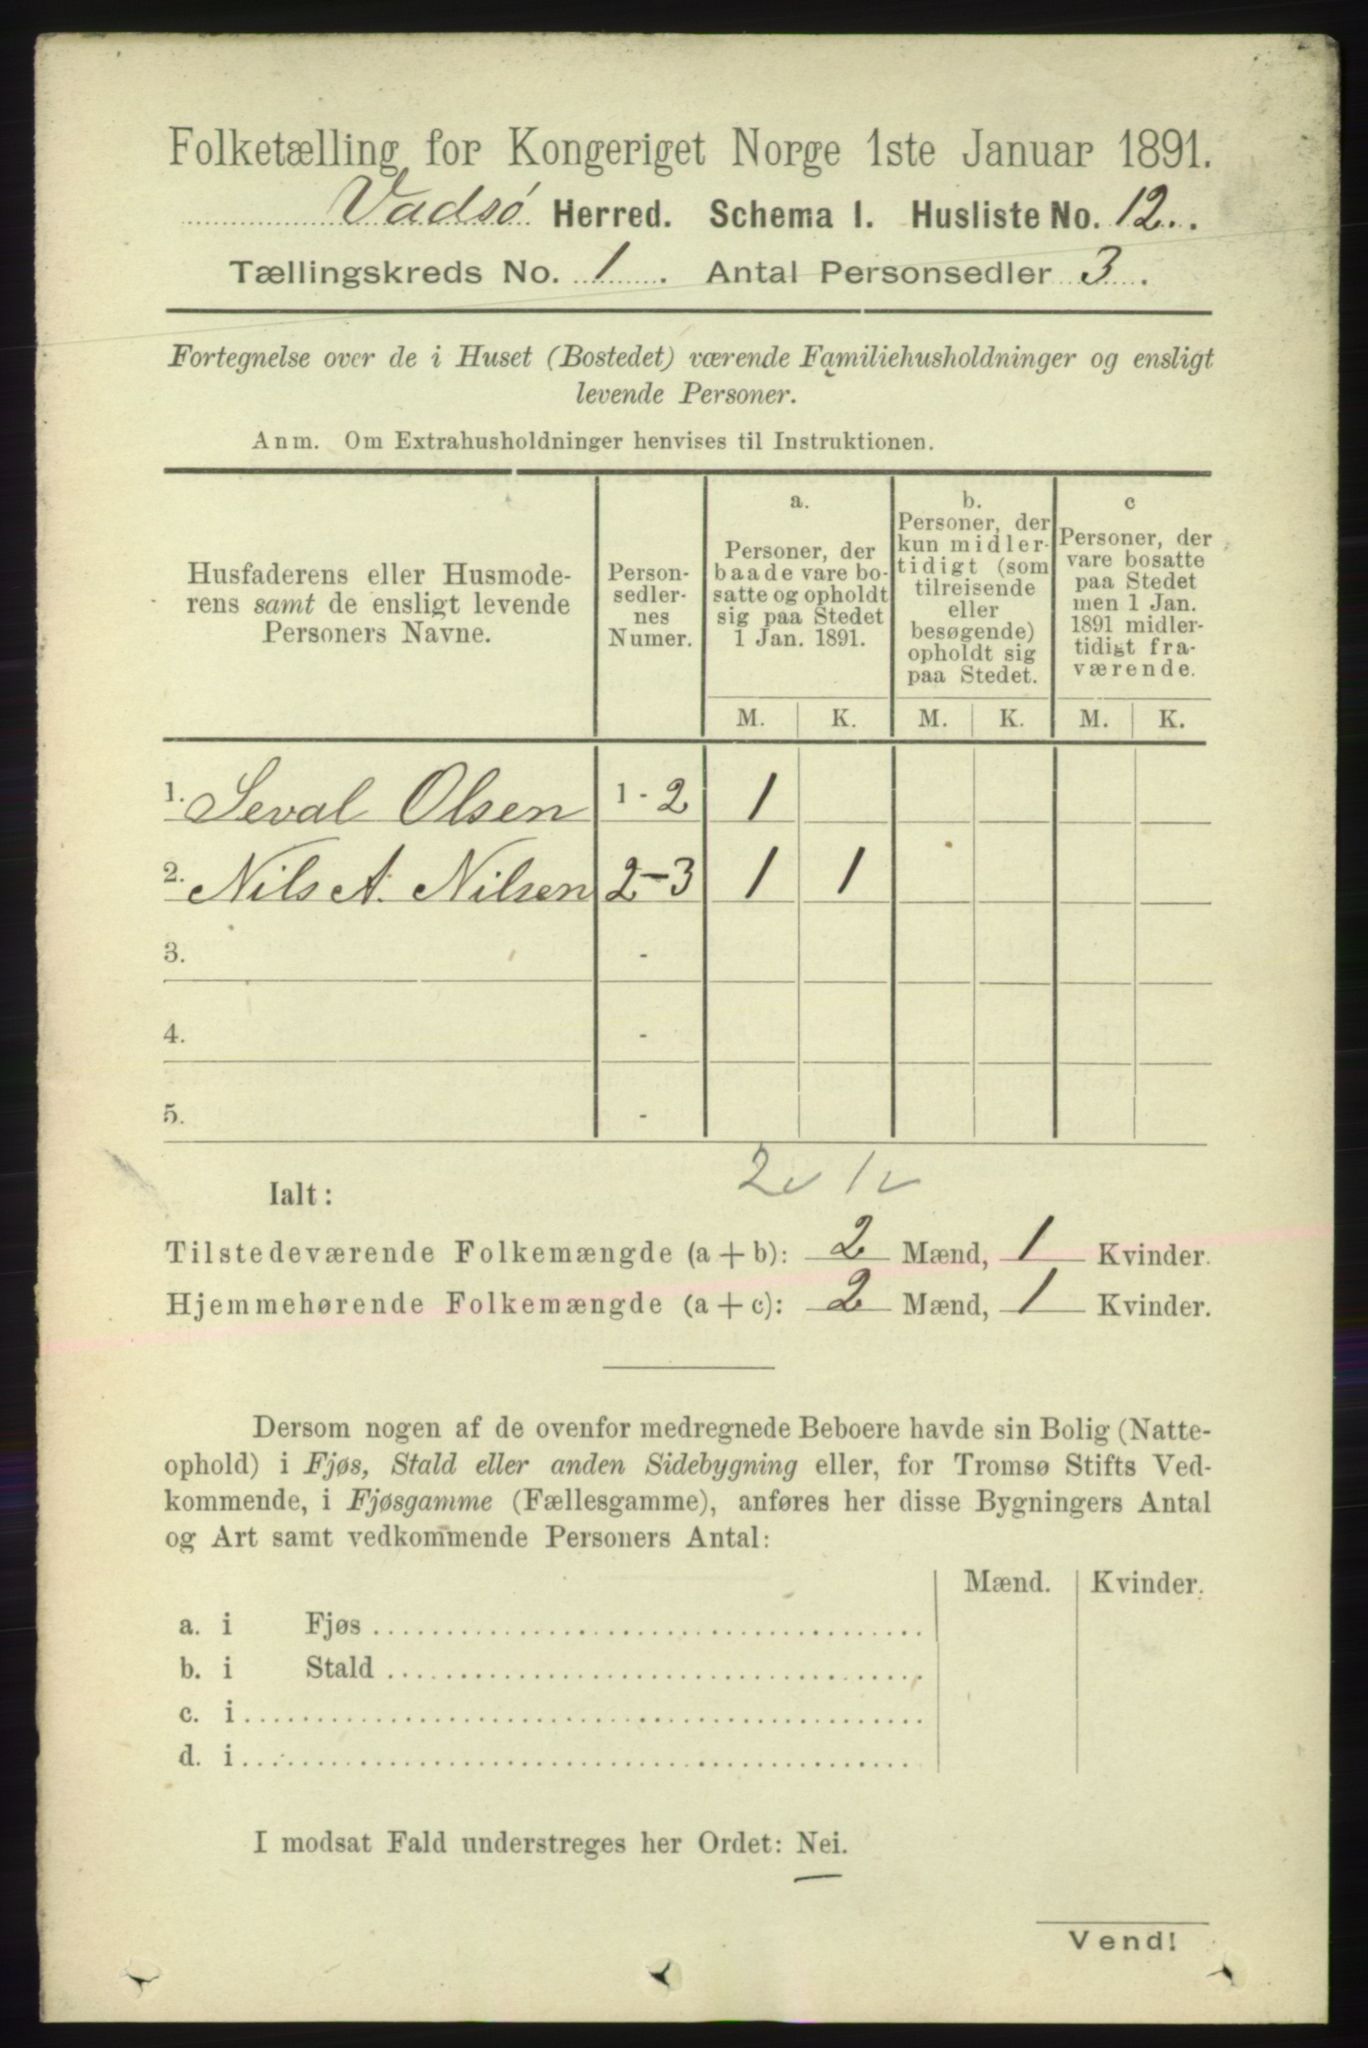 Folketælling for Kongeriget Norge 1ste Januar 1891.
Vadsø Herred. Schema I. Husliste No. 12.
Tællingskreds No. 1. Antal Personsedler 3.
Fortegnelse over de i Huset (Bostedet) værende Familiehusholdninger og ensligt
levende Personer.
Anm. Om Extrahusholdninger henvises til Instruktionen.
Husfaderens eller Husmode-
rens samt de ensligt levende
Personers Navne.
Person-
sedler-
nes
Numer.
a.
Personer, der
baade vare bo-
satte og opholdt
sig paa Stedet
1 Jan. 1891.
b.
Personer, der
kun midler-
tidigt (som
tilreisende
eller
besøgende)
opholdt sig
paa Stedet.
c
Personer, der
vare bosatte
paa Stedet
men 1 Jan.
1891 midler-
tidigt fra-
værende.
M. K. M. K. M. K.
1. Seval Olsen 1-2 1
2. Nils A. Nilsen 2-3 1 1
3. -
4. -
5. -
Ialt: 2 1
Tilstedeværende Folkemængde (a+b): 2 Mænd, 1 Kvinder.
Hjemmehørende Folkemængde (a+c): 2 Mænd, 1 Kvinder.
Dersom nogen af de ovenfor medregnede Beboere havde sin Bolig (Natte-
ophold) i Fjøs, Stald eller anden Sidebygning eller, for Tromsø Stifts Ved-
kommende, i Fjøsgamme (Fællesgamme), anføres her disse Bygningers Antal
og Art samt vedkommende Personers Antal:
Mænd. Kvinder.
a. i Fjøs
b. i Stald
c. i
d. i
I modsat Fald understreges her Ordet: Nei.
Vend!